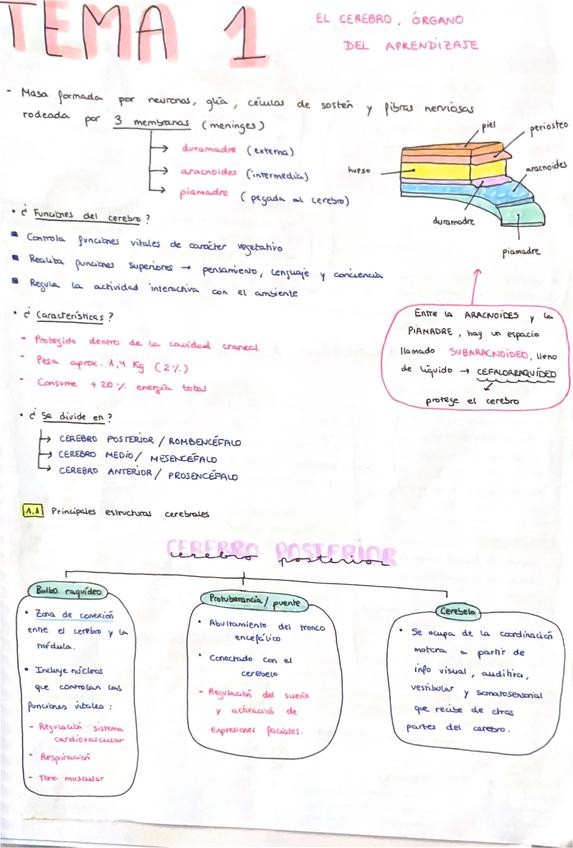 TEMA 1
EL CEREBRO, ÓRGANO
DEL APRENDIZAJE
- Masa formada por neuronas, glía, células de sostén y fibras nerviosas
rodeada por 3 membranas (meninges)
→ duramadre (externa)
→ aracnoides (intermedia)
→ piamadre (pegada al cerebro)
piel
periosteo
hueso
aracnoides
duramadre
piamadre
• ¿Funciones del cerebro?
Controla funciones vitales de carácter vegetativo
Realiza funciones superiores → pensamiento, lenguaje y conciencia
Regula la actividad interactiva con el ambiente
Entre la ARACNOIDES y la
PIAMADRE, hay un espacio
llamado SUBARACNOIDEO, lleno
de líquido → CEFALORRAQUÍDEO
protege el cerebro
• ¿Características?
- Protegido dentro de la cavidad craneal
- Pesa aprox. 1,4 Kg (2%)
- Consume +20% energía total
• ¿Se divide en?
→ CEREBRO POSTERIOR / ROMBENCÉFALO
→ CEREBRO MEDIO / MESENCÉFALO
→ CEREBRO ANTERIOR / PROSENCÉFALO
1.1 Principales estructuras cerebrales
CEREBRO POSTERIOR
cerebro posterior
Bulbo raquídeo
• Zona de conexión
entre el cerebro y la
médula.
• Incluye núcleos
que controlan las
funciones vitales:
- Regulación sistema
cardiovascular
- Respiración
- Tono muscular
Protuberancia / puente
• Abultamiento del tronco
encefálico
• Conectado con el
cerebelo
- Regulación del sueño
y activación de
expresiones faciales.
Cerebelo
• Se ocupa de la coordinación
motora a partir de
info visual, auditiva,
vestibular y somatosensorial
que recibe de otras
partes del cerebro.